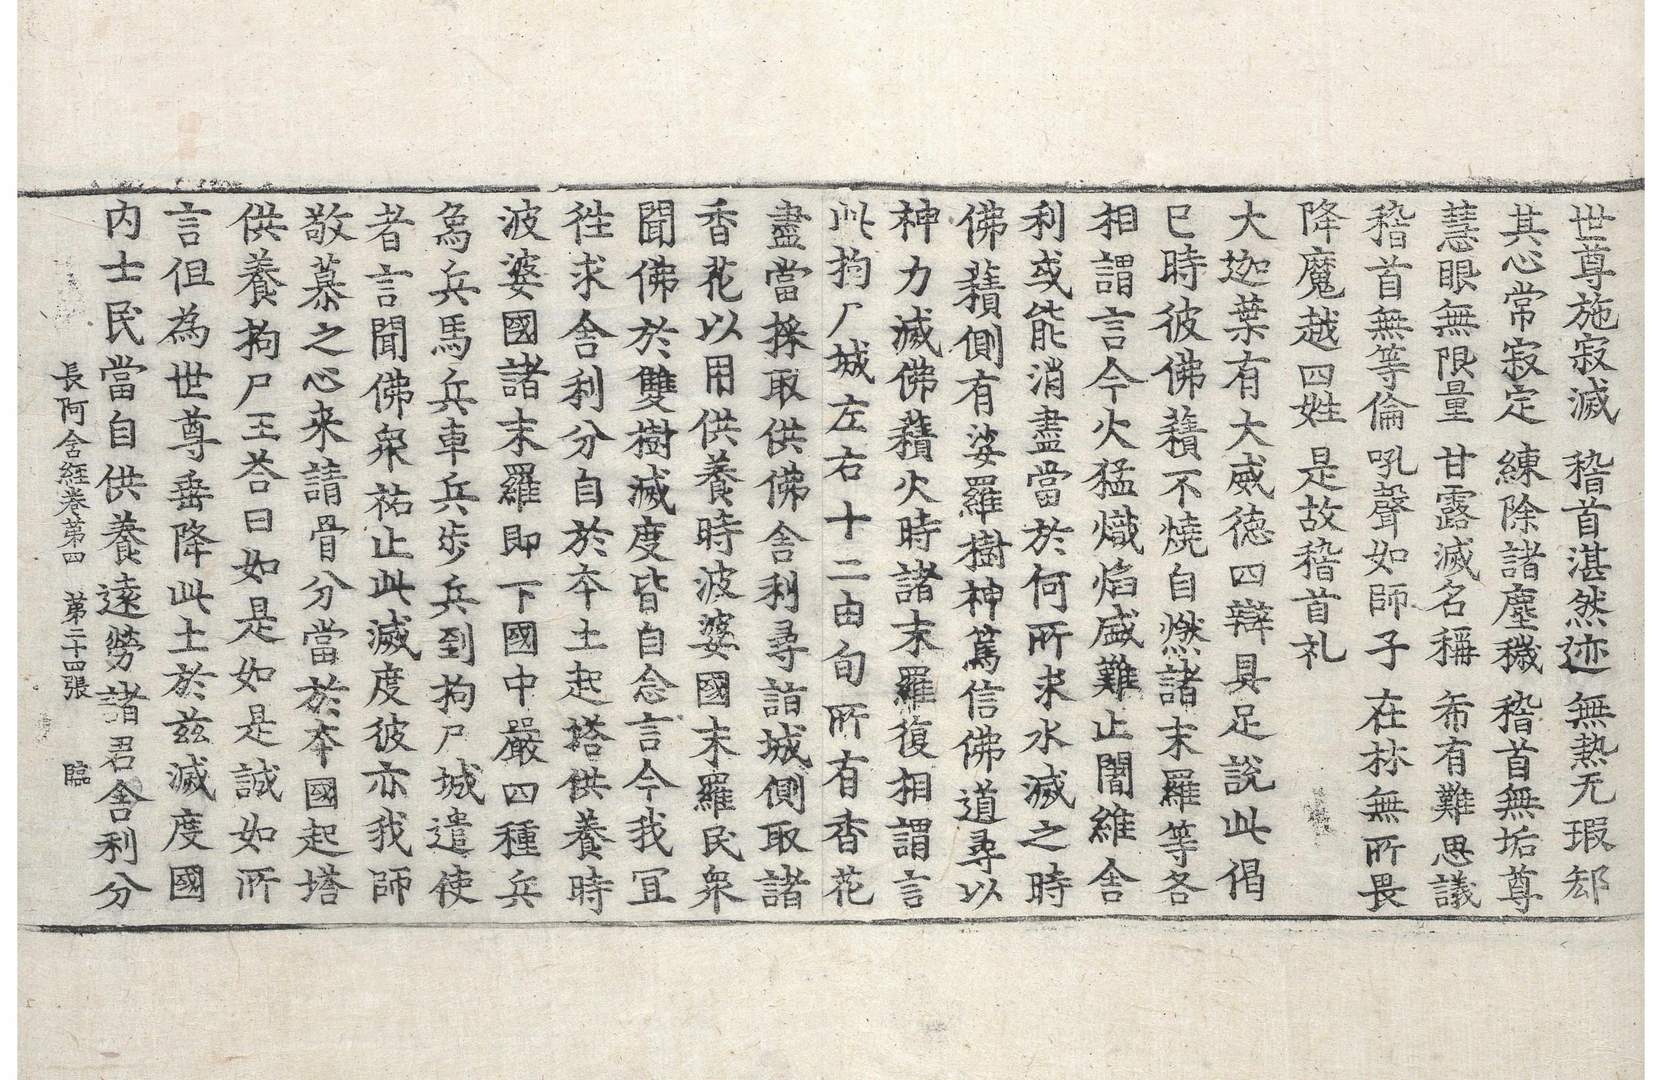 世尊施寂滅 稽首湛然迹 無熱无瑕郄
其心常寂定 練除諸塵穢 稽首無垢尊
慧眼無限量 甘露滅名稱 希有難思議
稽首無等倫 吼聲如師子 在林無所畏
降魔越四姓 是故稽首礼
大迦葉有大威德四辯具足說此偈
已時彼佛䕸不燒自燃諸末羅等各
相謂言今火猛熾焰盛難止闍維舍
利或能消盡當於何所求水滅之時
佛䕸側有娑羅樹神篤信佛道尋以
神力滅佛䕸火時諸末羅復相謂言
此拘尸城左右十二由旬所有香花
盡當採取供佛舍利尋詣城側取諸
香花以用供養時波婆國末羅民衆
聞佛於雙樹滅度皆自念言今我冝
徃求舍利分自於夲土起塔供養時
波婆國諸末羅即下國中嚴四種兵
象兵馬兵車兵步兵到拘尸城遣使
者言聞佛衆祐止此滅度彼亦我師
敬慕之心来請骨分當於夲國起塔
供養拘尸王荅曰如是如是誠如所
言但為世尊垂降此土於兹滅度國
内士民當自供養遠勞諸君舍利分
長阿含經卷第四 第二十四張 臨